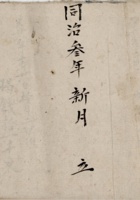 同治叁年新月 立